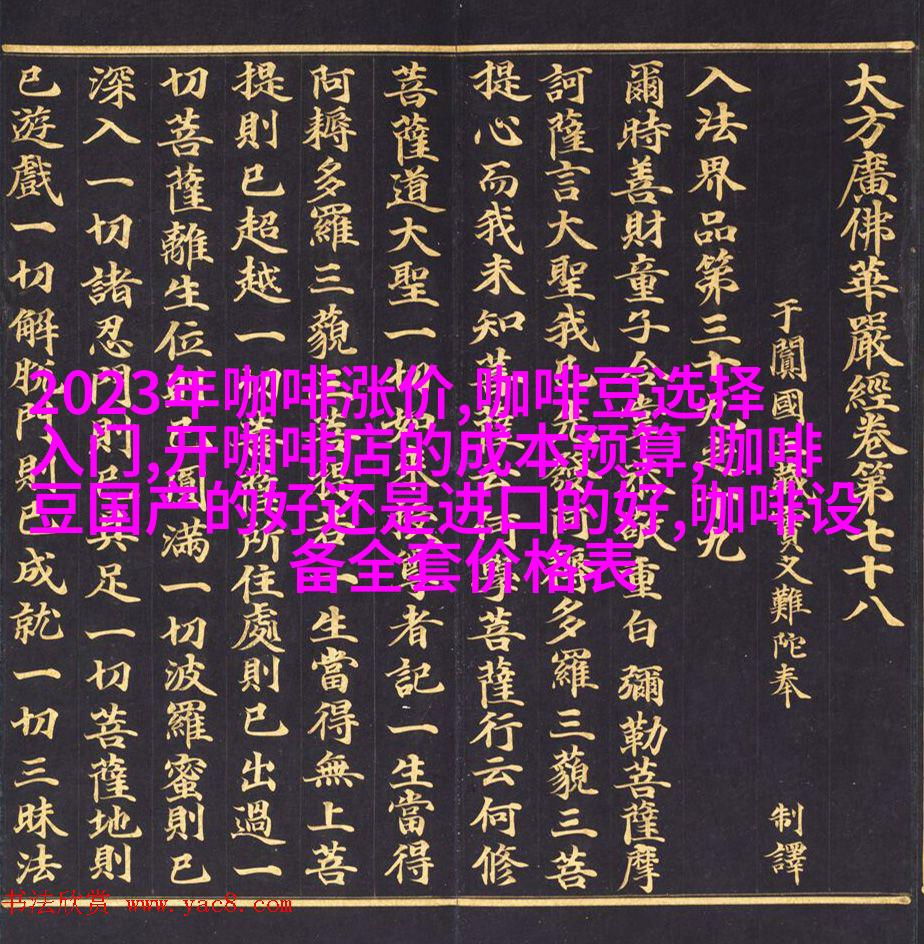 大方廣佛華嚴經卷第七十八
于闐國 叉難陀奉 制譯
入法界品第三十九 九
爾時善財童子合 重白彌勒菩薩摩
訶薩言大聖我已 多羅三藐三菩
提心而我未知菩薩云何學菩薩行云何修
菩薩道大聖一切如來 尊者記一生當得
阿耨多羅三藐三菩 一生當得無上菩
提則已超越一切菩薩所住處則已出過一
切菩薩離生位則已圓滿一切波羅蜜則已
深入一切諸忍門則已具足一切菩薩地則
已遊戲一切解脫門則已成就一切三昧法
2023年咖啡涨价,咖啡豆选择
入门,开咖啡店的成本预算,咖啡
豆国产的好还是进口的好,咖啡设
备全套价格表
书法欣赏 www.yac8.com